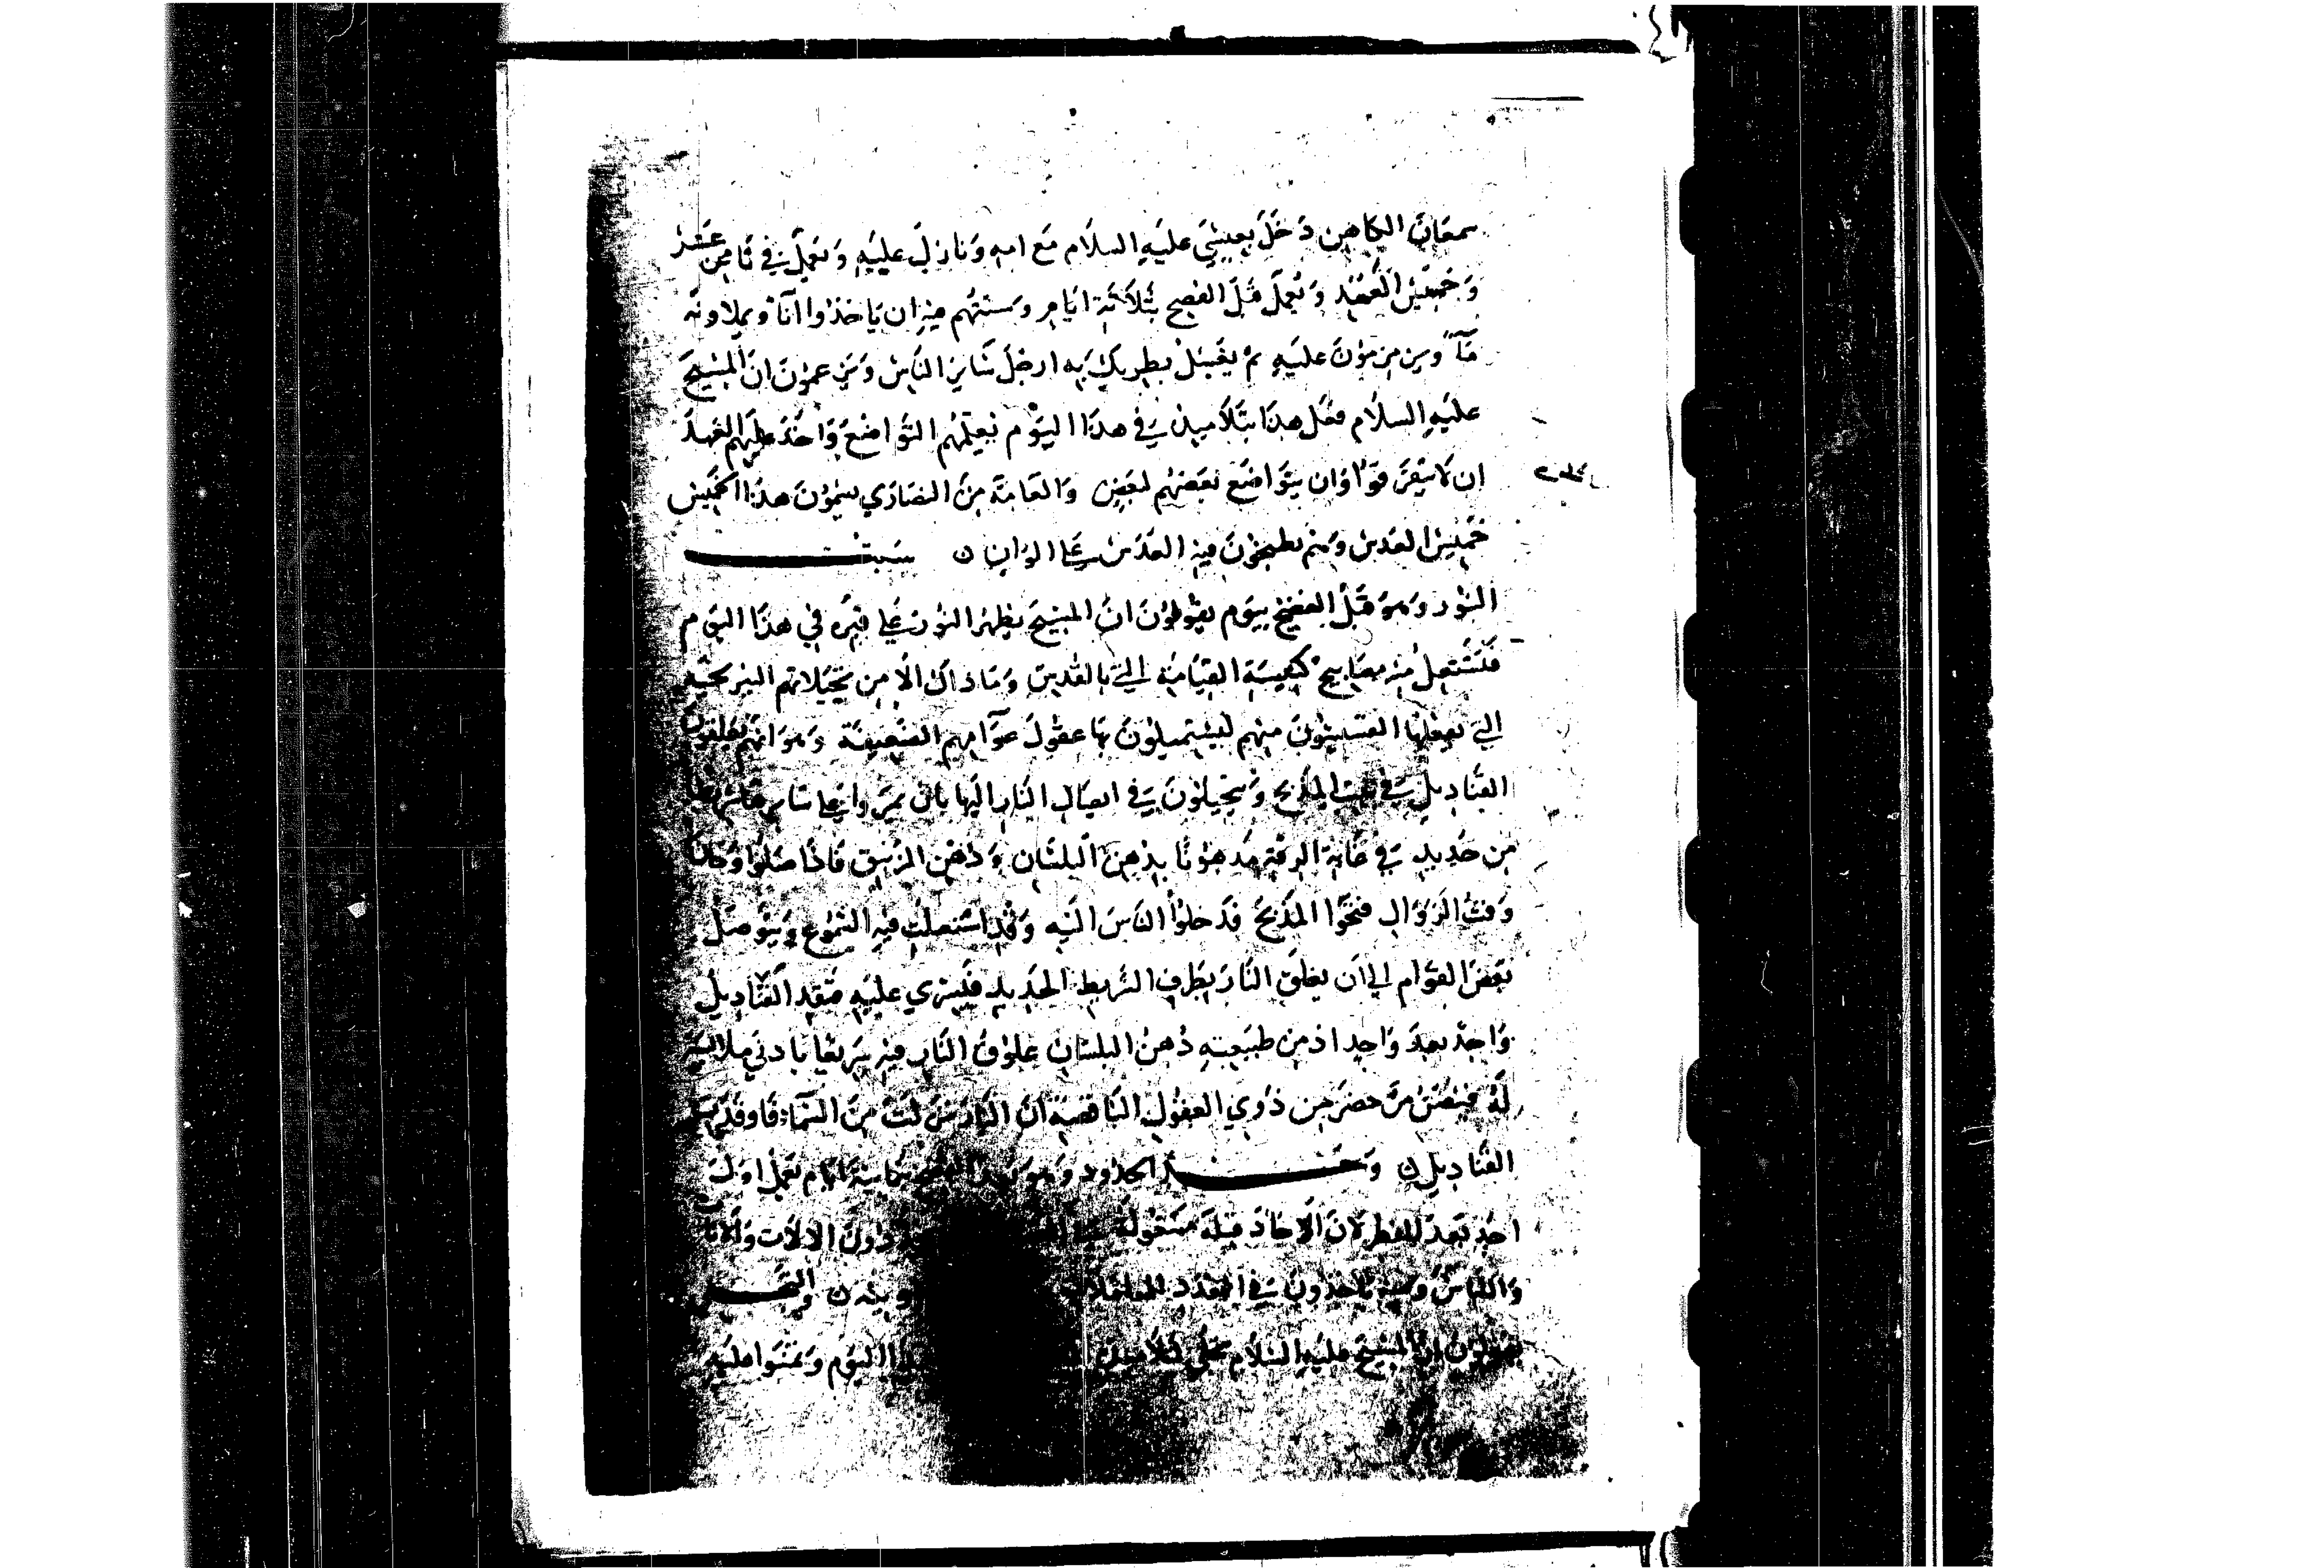 سمعان الكاهن دخل بعيسى عليه السلام مع امه وبارك عليه ويعمل في ثامن عشر
وخميس العهد ويعمل قبل الفصح بثلاثة ايام وسنتهم فيه ان ياخذوا آناء ويملاونه
ماء ويزمزمون عليه ثم يغسل بطريك به ارجل سائر الناس ويزعمون ان المسيح
عليه السلام فعل هذا بتلاميذه في هذا اليوم يعلمهم التواضع واخذ عليهم العهد
ان لا يتفرقوا وان يتواضع بعضهم لبعض والعامة من النصارى يسمون هذا الخميس
خميس العدس وهم يطبخون فيه العدس على الوان سبت
النور وهو قبل الفصح بيوم يقولون ان المسيح يظهر النور على قبره في هذا اليوم
فتشتعل منه مصابيح كنيسة القيامة التي بالقدس وما ذاك الا من تخيلاتهم
التي يفعلها القسيسون منهم ليستميلون بها عقول عوامهم الضعيفة وهو انهم يعلقون
القناديل في بيت المذبح ويتحيلون في ايصال النار اليها بان يمروا على سائرها شريط
من حديد في غاية الرقة مدهونا بدهن البلسان ودهن الزنبق فاذا صلوا وكان
وقت الزوال فتحوا المذبح فدخلوا الناس اليه وقد اشتعلت فيه الشموع ويتوصل
بعض القوام الى ان يعلق النار بطرف الشريط الحديد فتسري عليه فتقد القناديل
واحد بعد واحد اذ من طبيعة دهن البلسان علوق النار فيه سريعا بادنى ملامسة
له فيظن من حضر من ذوي العقول الناقصة ان النار نزلت من السماء فاوقدت
القناديل وحد الحدود وهو بعد الفصح بثمانية ايام يعمل اول
احد بعد الفطر لان الاحاد قبله مشغولة يجددون الالات والاثاث
واللباس وفيه ياخذون في المعاملات والتجلي
يقولون ان المسيح عليه السلام تجلى لتلاميذه اليوم وتمنوا عليه